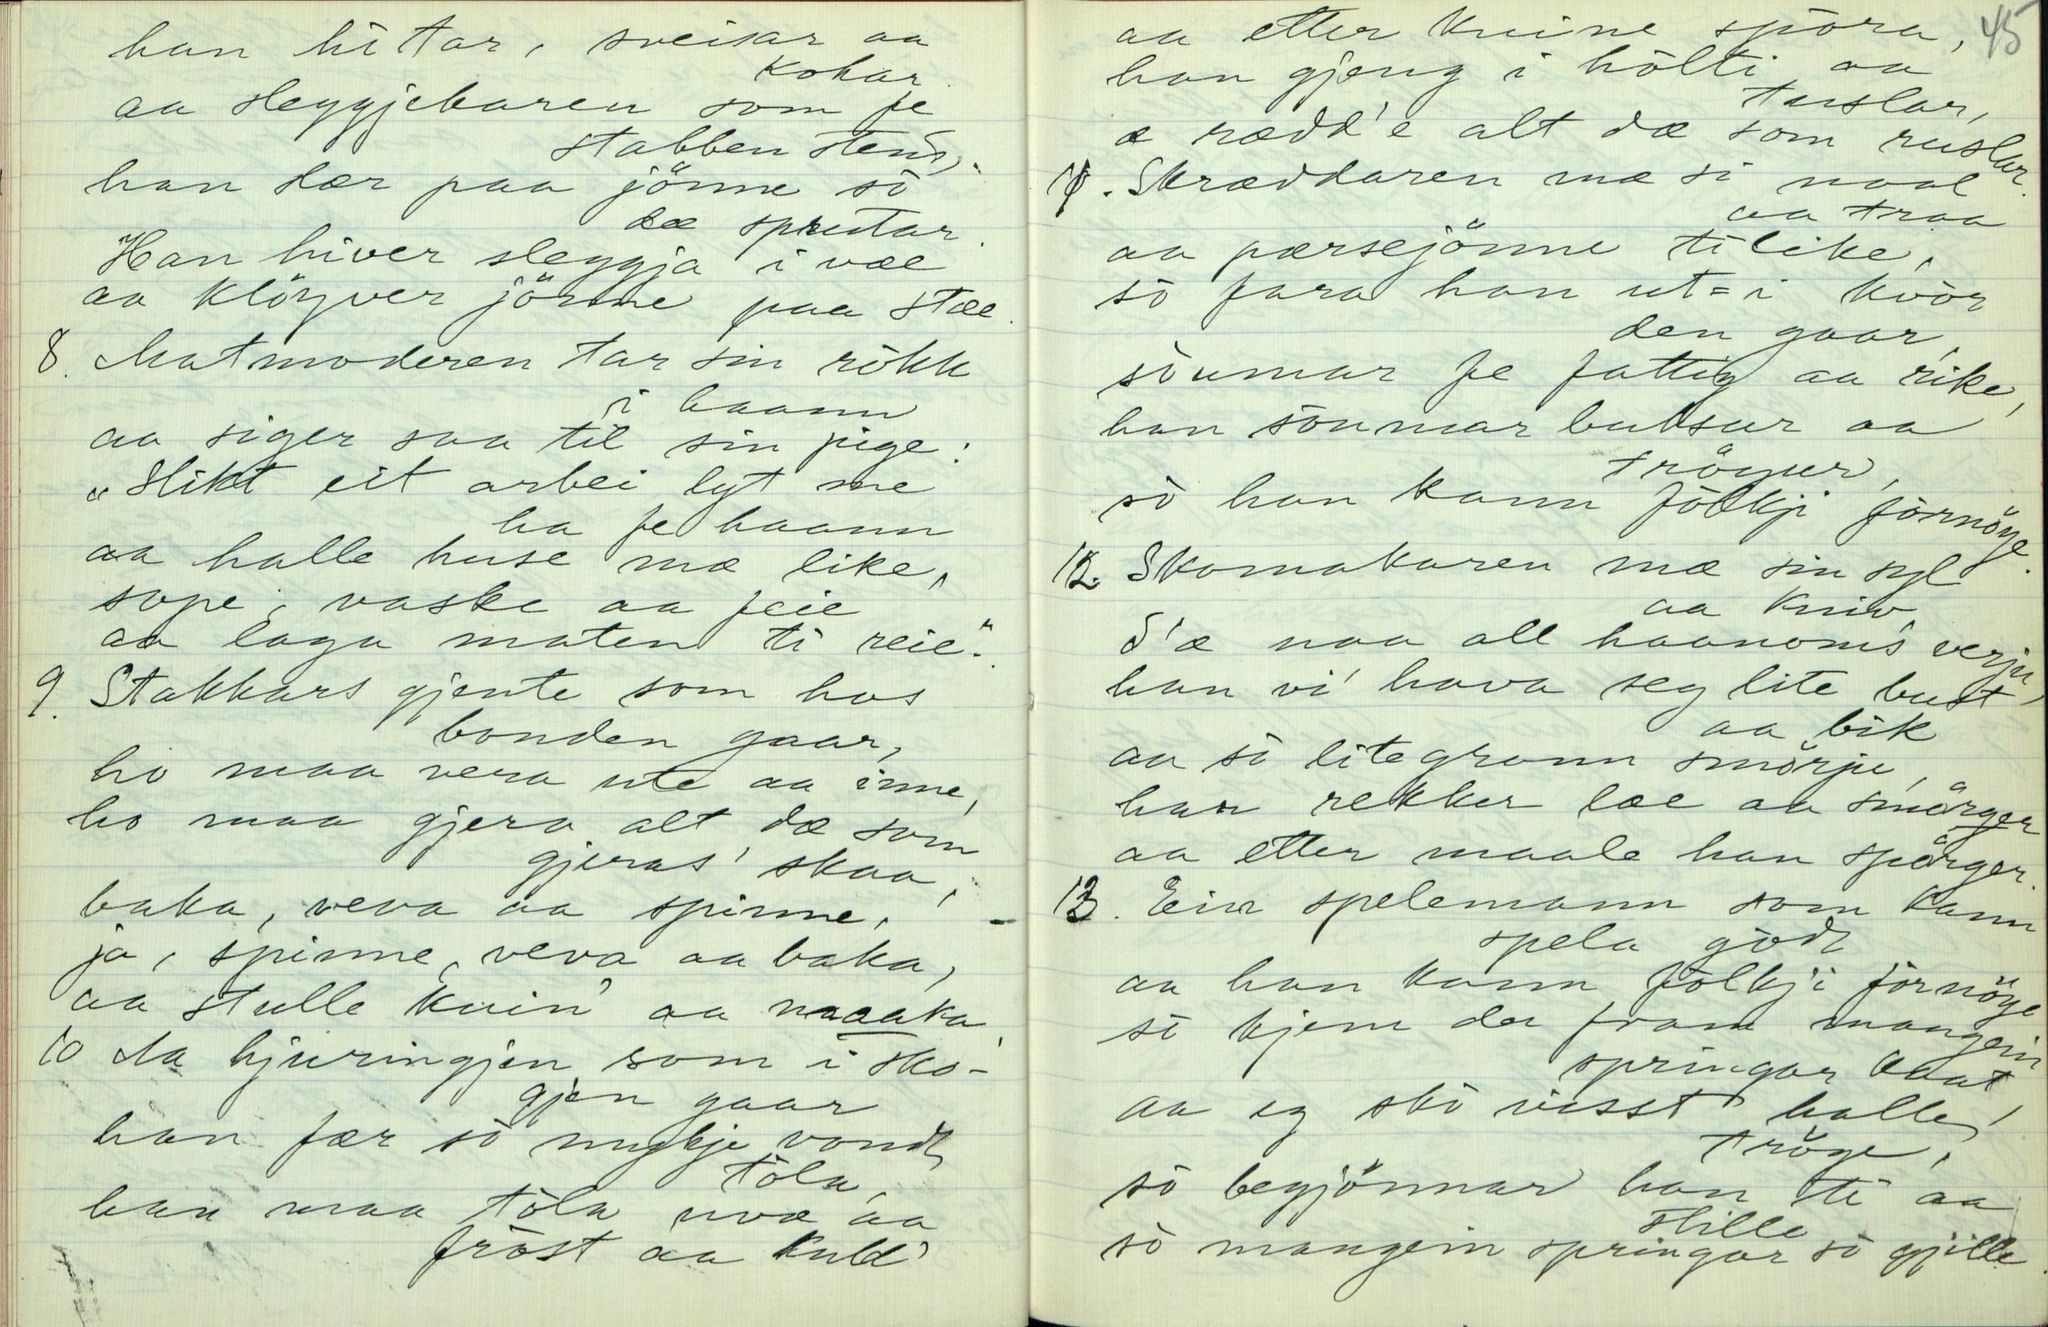 han hitar, sveisar aa
kokar
aa sleggjekaren som fe
stabben stend,
han slær paa jönne so
dæ sprutar.
Han hiver sleggja i væe
aa klöyver jönne paa stæe.
8. Matmoderen tar sin rokk
i haann
aa siger saa til sin pige:
"Slikt eit arbei lyt me
ha fe haann
aa halle huse mæ like,
sope, vaske aa feie
aa laga maten ti reie".
9. Stakkars gjente som hos
bonden gaar,
ho maa vera ute aa inne,
ho maa gjera alt dæ som
gjeras' skaa,
baka, veva aa spinne, -
ja, spinne, veva aa baka,
aa stulle kuin' aa maaka.
10 Aa hjuringjen som i sko-
gjen gaar
han fær so mykje vondt
tola,
han maa tola uvæ aa
frost aa kuld'
45
aa etter kuine spora,
han gjeng i holti aa
tuslar,
æ rædd'e alt dæ som ruslar.
11. Skræddaren mæ si naal
aa traa
aa pærsejönne tilike,
so fara han ut = i kvor
den gaar,
soumar fe fattig aa rike,
han soumar buksur aa
tröyur,
so han kann folkji fornöye.
12. Skomakaren mæ sin syl
aa kniv,
D'æ naa all haanoms verju,
han vi' hava seg lite bust,
aa bik
aa so litegrann smörju,
han rekker læe aa smörger
aa etter maale han spörger.
13. Ein spelemann som kann
spela godt
aa han kann folkji fornöye
so kjem der fram mangein
springar kaat,
aa eg sko visst halle
tröye,
so begjönnar han ti aa
stille
so mangein springar so gjille.